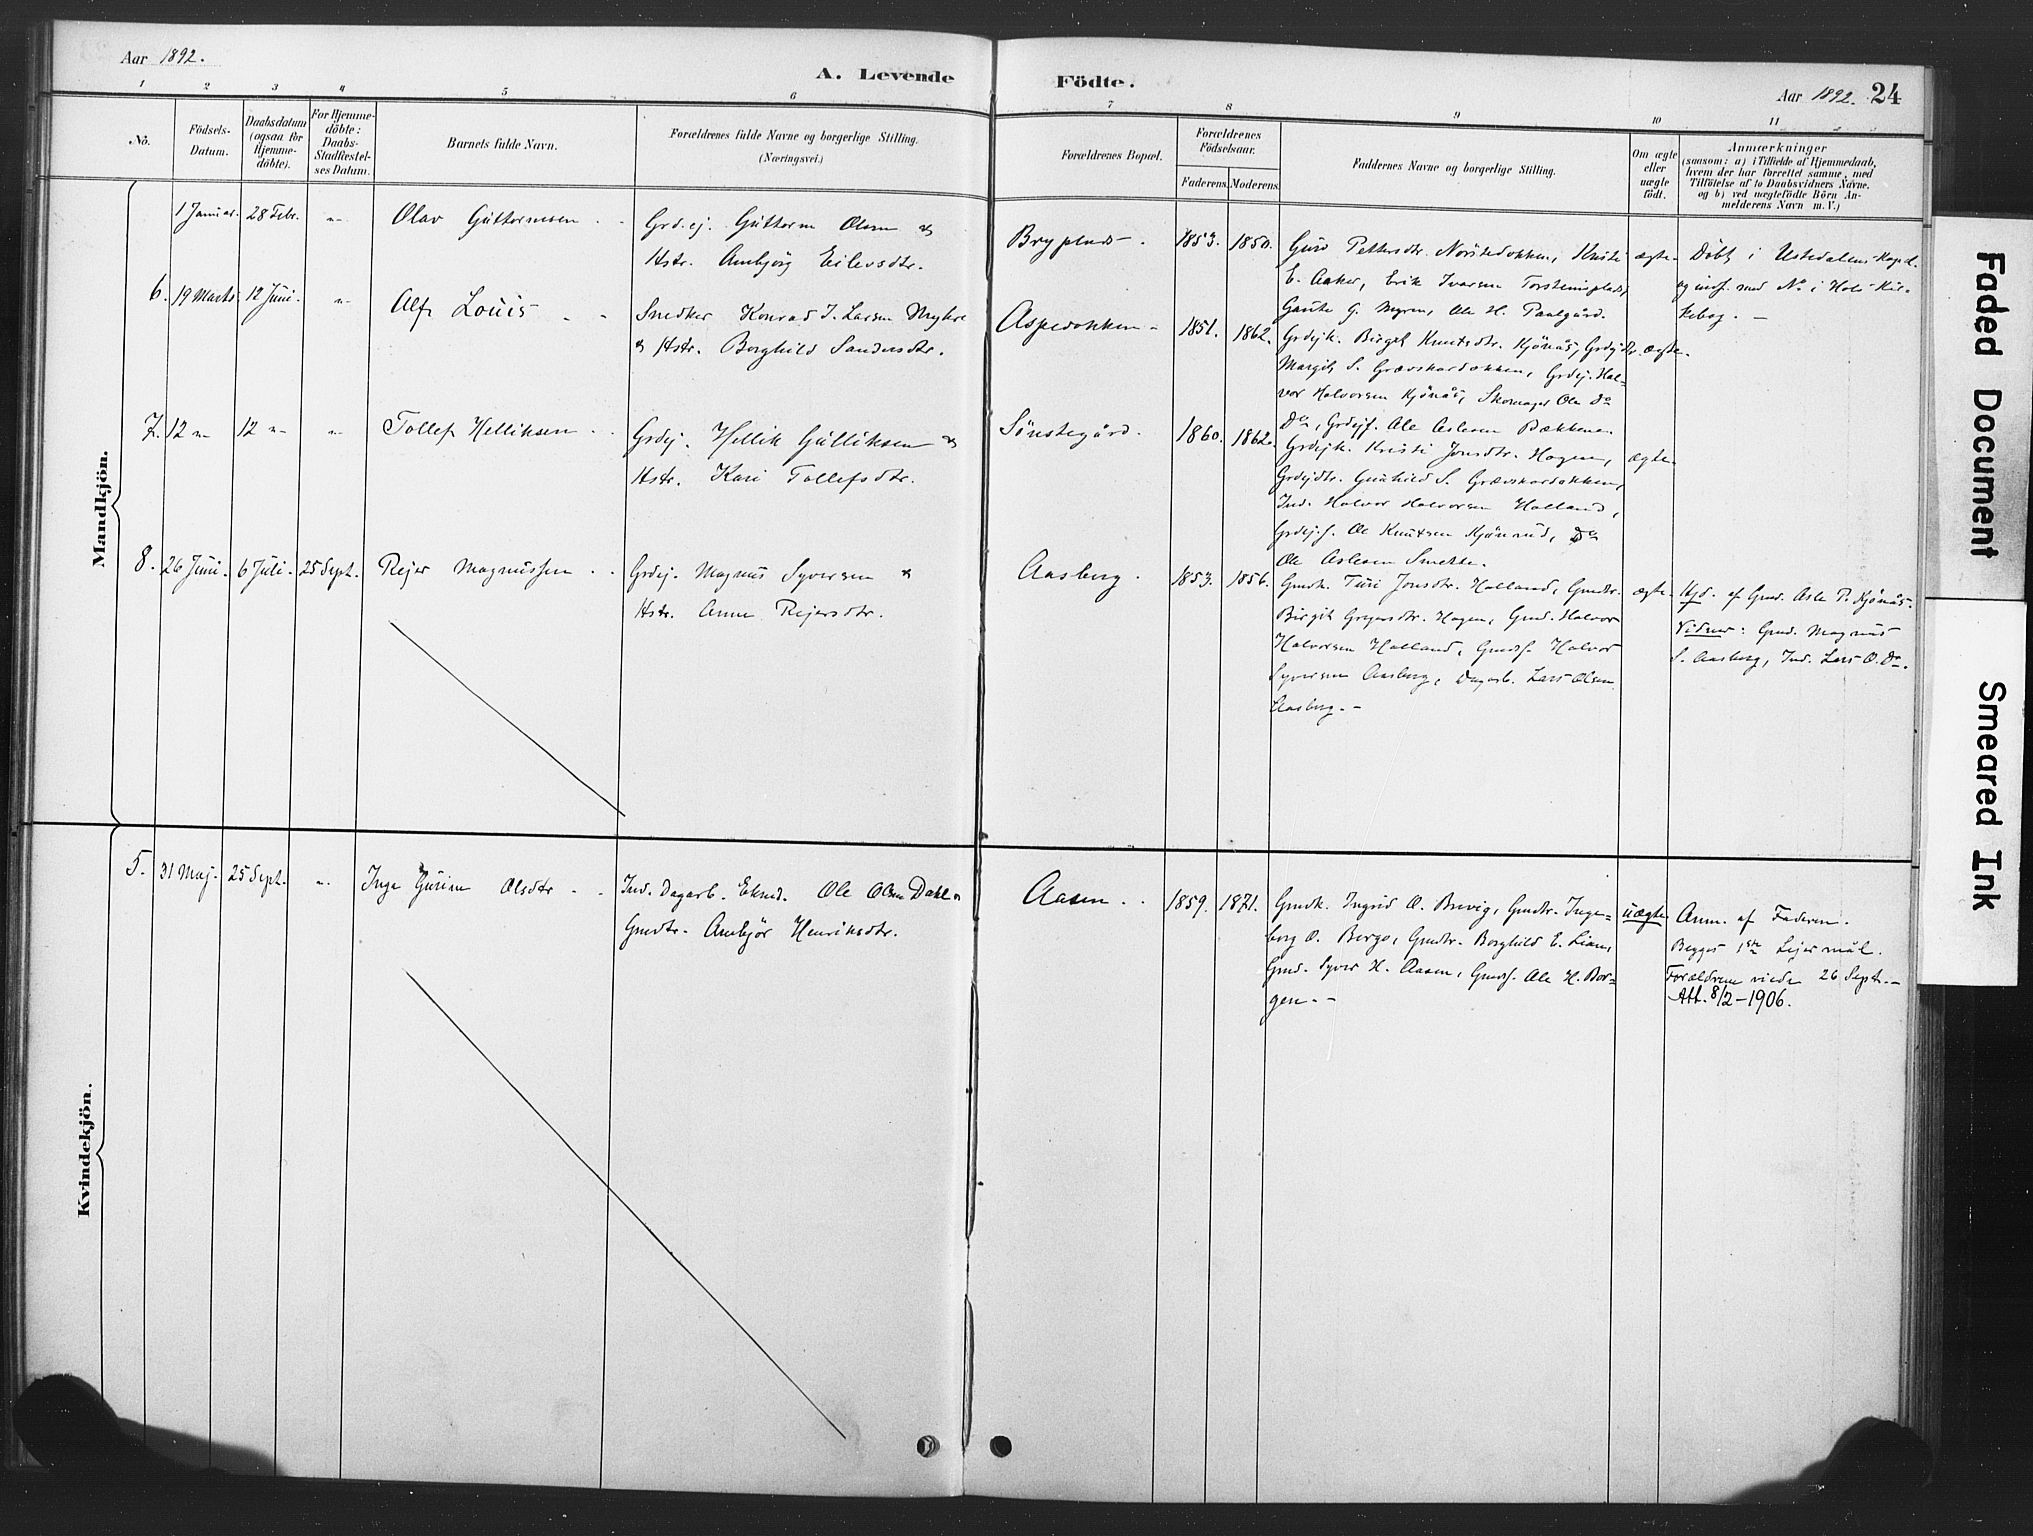 Aar 1892.
A. Levende Födte.
Aar 1892. 24
1 2 3 4 5 6 7 8 9 10 11
No.
Födsels-Datum.
Daabsdatum (ogsaa for Hjemme-döbte).
For Hjemme-döbte: Daabs-Stadfæstel-ses Datum.
Barnets fulde Navn.
Forældrenes fulde Navne og borgerlige Stilling.
(Næringsvei.)
Forældrenes Bopæl.
Forældrenes Födselsaar.
Faderens. Moderens.
Faddernes Navne og borgerlige Stilling.
Om ægte eller uægte födt.
Anmærkninger
(saasom: a) i Tilfælde af Hjemmedaab,
hvem der har forrettet samme, med
Tilföielse af to Daabsvidners Navne.
og b) ved uægtefödte Börn An-
melderens Navn m. V.)
Mandkjön.
1 Januar. 28 Febr. -"- Olav Guttormsen - -
Grdej. Guttorm Olsen &
Hstr. Ambjörg Eilevsdtr.
Bryplads -
1853. 1850.
Guro Pettersdtr. Norstedokken, Kristi
E. Aaker, Erik Ivarsen Torsteinsplads,
Gaute G. Myren, Ole H. Paalgård.
ægte.
Döbt i Ustedalens Kapel
og indf. med No i Hols Kir-
kebog. -
6. 19 Marts. 12 Juni. -"- Alf Louis - -
Snedker Konrad J. Larsen Myhre
& Hstr. Borghild Sandersdtr.
Aspedokken -
1851. 1862.
Grdejk. Birgit Knutsdtr. Kjönås, Grdejdtr.
Margit S. Grævskardokken, Grdej. Hal-
vor Halvorsen Kjönås, Skomager Ole Do
Do, Grdejs. Ole Aslesen Bækkene.
ægte.
7. 12 -"- 12 -"- -"- Tollef Helliksen - -
Grdej. Hellik Gulliksen &
Hstr. Kari Tollefsdtr.
Sönstegård.
1860. 1862.
Grdejk. Kristi Jonsdtr. Hagen,
Grdejdtr. Gunhild S. Grævskardokken,
Ind. Halvor Halvorsen Holland,
Grdejs. Ole Knutsen Kjönås, Do
Ole Aslesen
ægte.
8. 26 Juni. 6 Juli. 25 Sept. Rejer Magnussen - -
Grdej. Magnus Syversen &
Hstr. Anne Rejersdtr.
Aasberg.
1853. 1856.
Gmdk. Turi Jonsdtr. Holland, Gmdtr.
Birgit Gregersdtr. Hagen, Gmd. Halvor
Halvorsen Holland, Gmds. Halvor
Syversen Aasberg, Dagarb. Lars Olsen
Aasberg. -
ægte.
Hjd. af Gmd. Asle P. Kjönås.
Vidner: Gmd. Magnus
S. Aasberg, Ind. Lars O. Do.
Kvindekjön.
5. 31 Maj. 25 Sept. -"- Inge Gurine Olsdtr - -
Ind. Dagarb. Ole Olsen Dahl &
Gmdtr. Ambjör Henriksdtr.
Aasen - -
1859. 1871.
Gmdk. Ingrid O. Brevig, Gmdtr. Inge-
borg O. Bergo, Gmdtr. Borghild E. Lien,
Gmd. Syver H. Aasen, Gmds. Ole H. Bor-
gen. -
uægte
Anm. af Faderen.
Begges 1ste Lejermål.
Forældrene viede 26 Sept. -
Att. 8/2-1906.
Faded Document
Smeared Ink